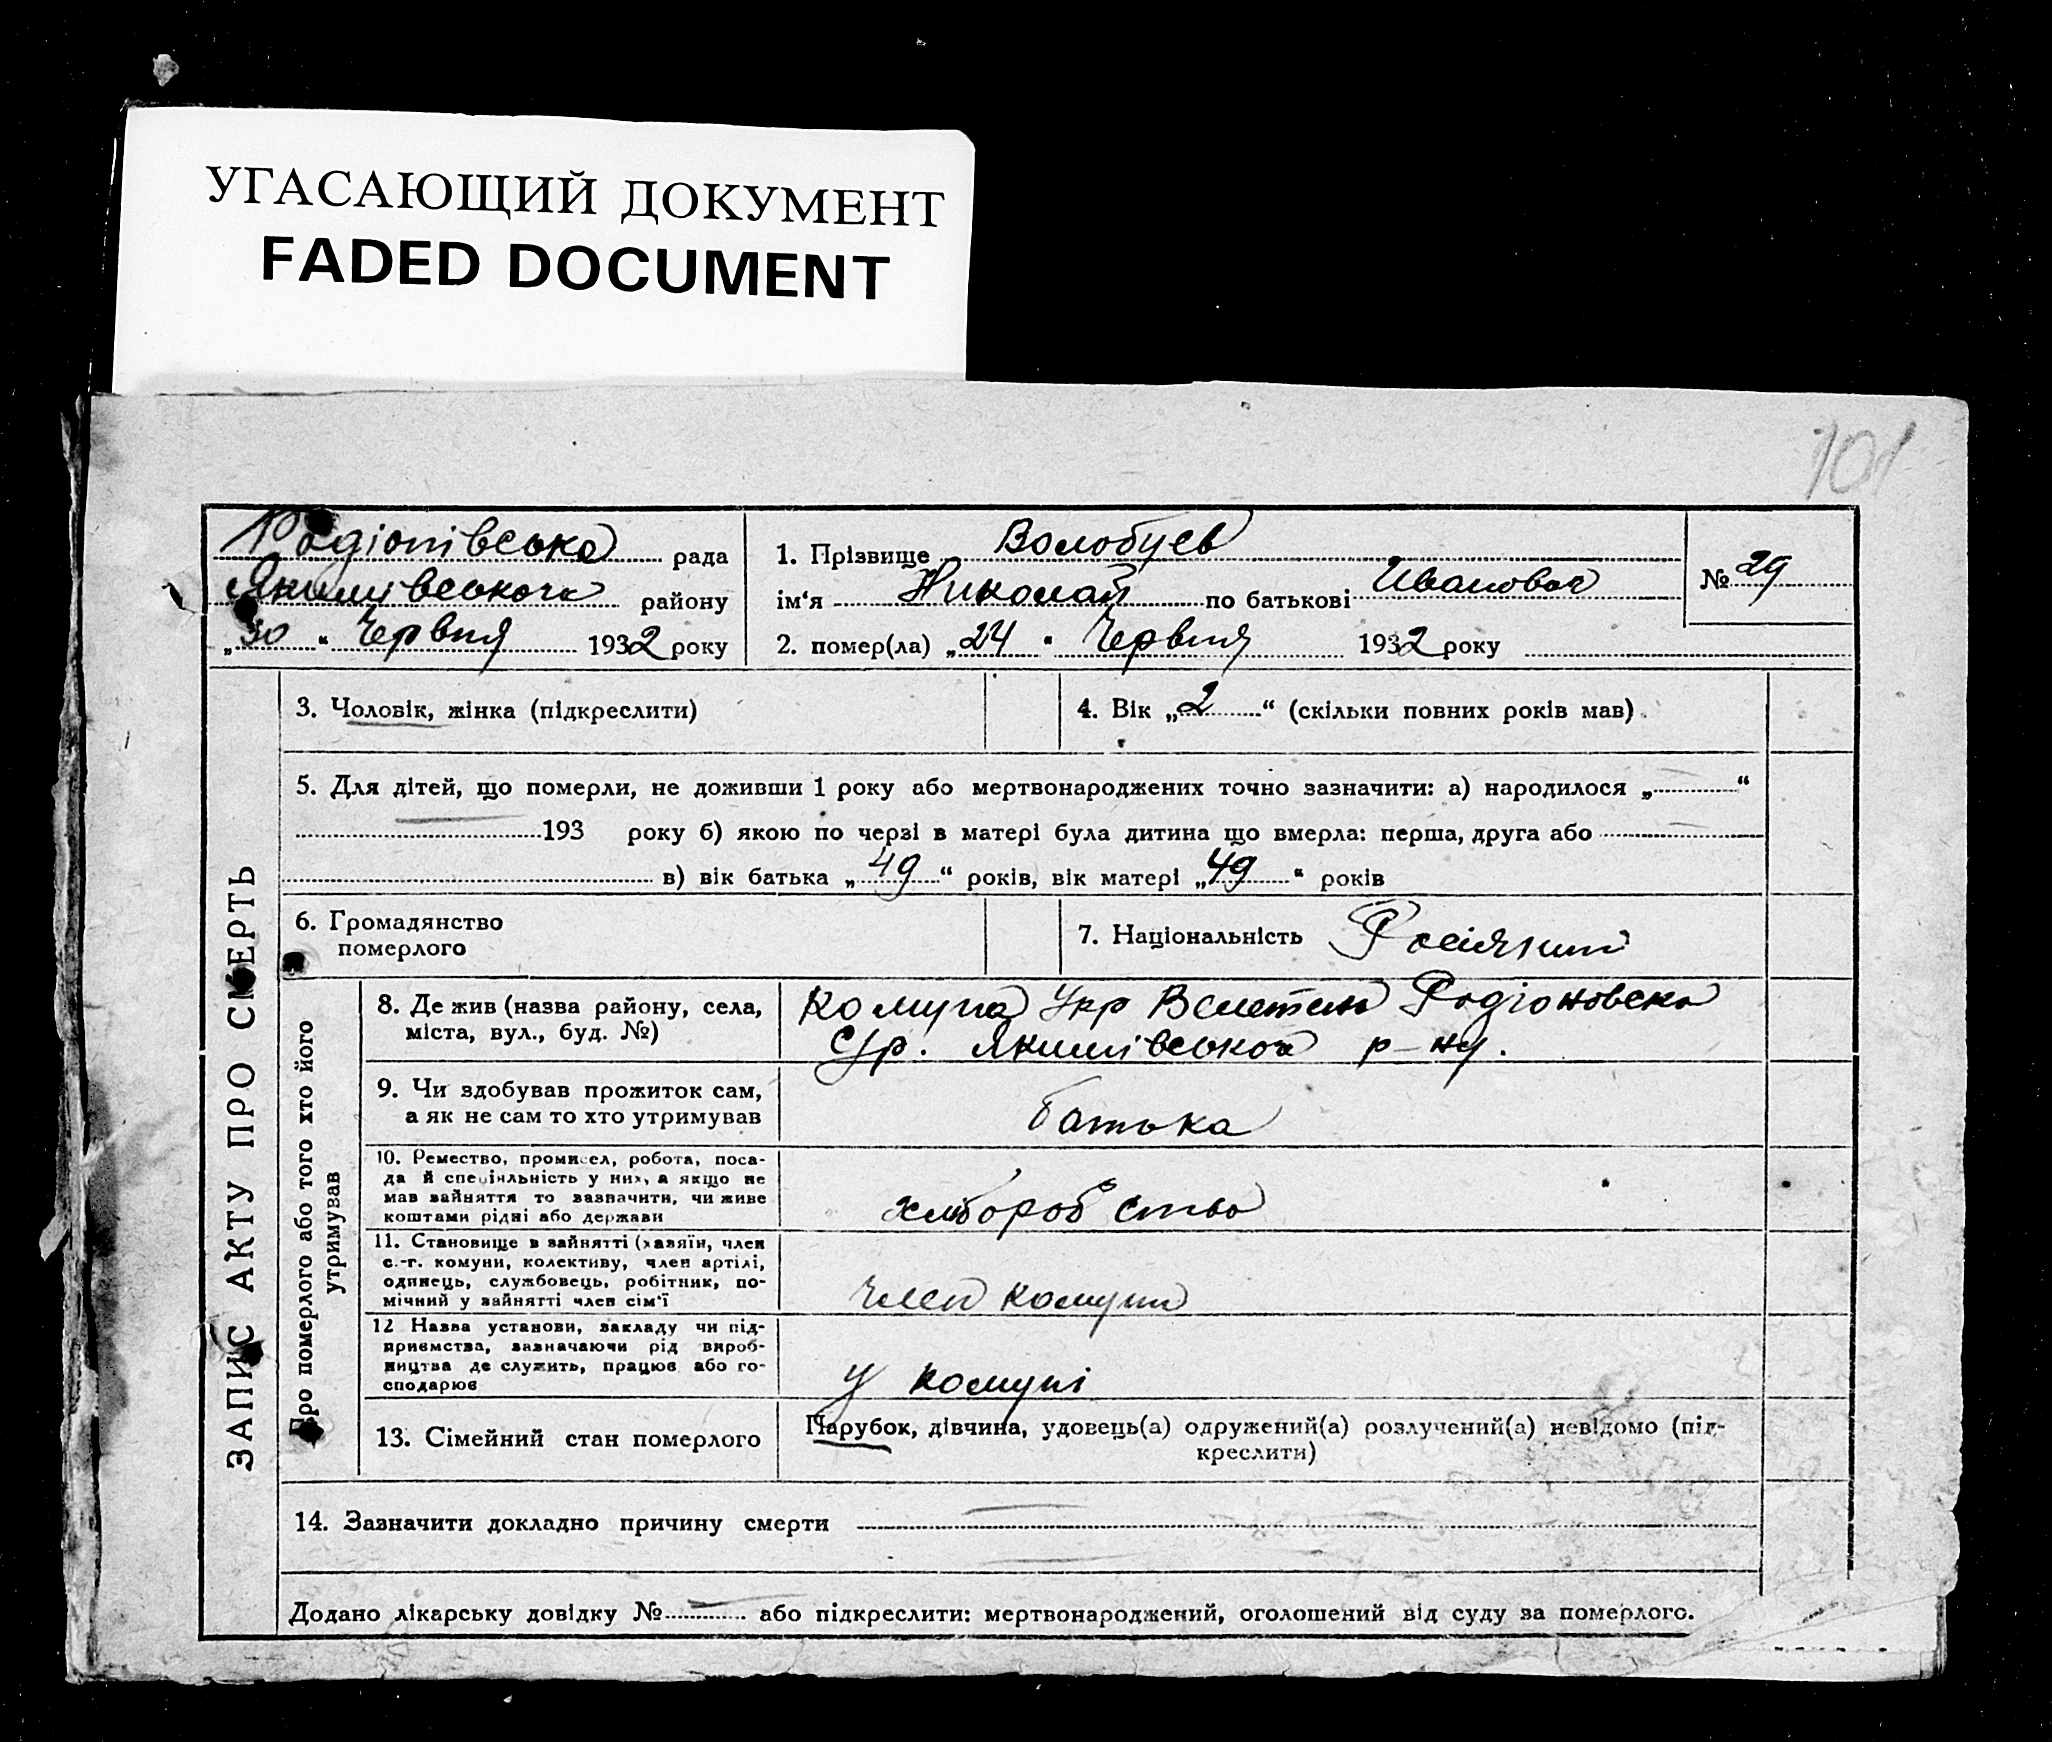 УГАСАЮЩИЙ ДОКУМЕНТ
FADED DOCUMENT
101
Родіонівська рада
Якимівського району
„30“ Червня 1932 року
1. Прізвище Волобуев
ім‘я Николай по батькові Иванович
№ 29
2. помер(ла) „24“ Червня 1932 року
ЗАПИС АКТУ ПРО СМЕРТЬ
3. Чоловік, жінка (підкреслити)
4. Вік „2“ (скільки повних років мав)
5. Для дітей, що померли, не доживши 1 року або мертвонароджених точно зазначити: а) народилося „ “
193 року б) якою по черзі в матері була дитина що вмерла: перша, друга або
в) вік батька „49“ років, вік матері „49“ років
6. Громадянство
померлого
7. Національність
Про померлого або того хто його
утримував
8. Де жив (назва району, села,
міста, вул., буд. №)
Комуна Укр Родіоновська
С/р. Якимівського р-ну.
9. Чи здобував прожиток сам,
а як не сам то хто утримував
батька
10. Ремество, промисел, робота, поса-
да й спеціяльність у них, а якщо не
мав зайняття то зазначити, чи живе
коштами рідні або держави
хліборобство
11. Становище в зайнятті (хазяїн, член
с.-г. комуни, колективу, член артілі,
одинець, службовець, робітник, по-
мічний у зайнятті член сім‘ї
член комуни
12 Назва установи, закладу чи під-
приємства, зазначаючи рід вироб-
ництва де служить, працює або го-
сподарює
у комуні
13. Сімейний стан померлого
Парубок, дівчина, удовець(а) одружений(а) розлучений(а) невідомо (під-
креслити)
14. Зазначити докладно причину смерти
Додано лікарську довідку № або підкреслити: мертвонароджений, оголошений від суду за померлого.